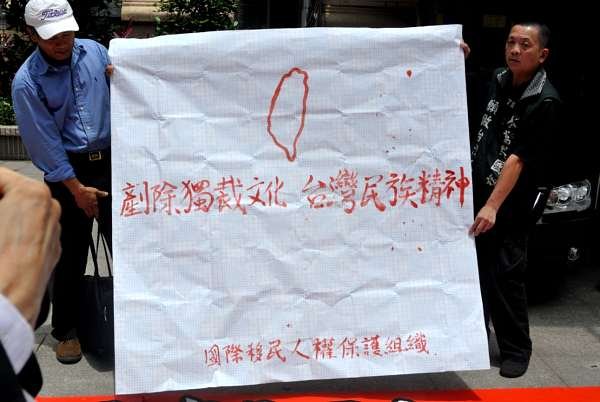 剷除獨裁文化 台灣民族精神
國際移民人權保護組織